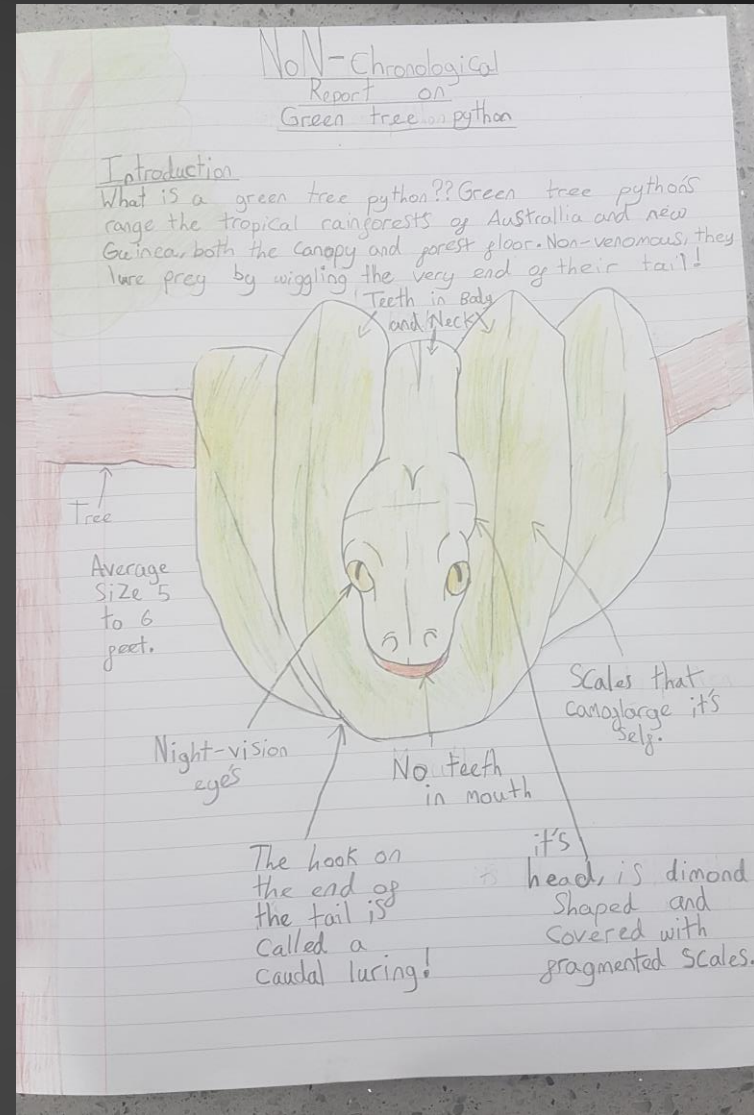 NoN-Chronological
Report on
Green tree python
Introduction
What is a green tree python?? Green tree python's
range the tropical rainforests of Australlia and new
Guinea, both the canopy and forest floor. Non-venomous, they
lure prey by wiggling the very end of their tail!
Teeth in Body
and Neck
Tree
Average
Size 5
to 6
feet.
Scales that
camoflarge it's
self.
Night-vision
eye's
No teeth
in mouth
The hook on
the end of
the tail is
Called a
Caudal luring!
it's
head, is dimond
Shaped and
Covered with
fragmented Scales.